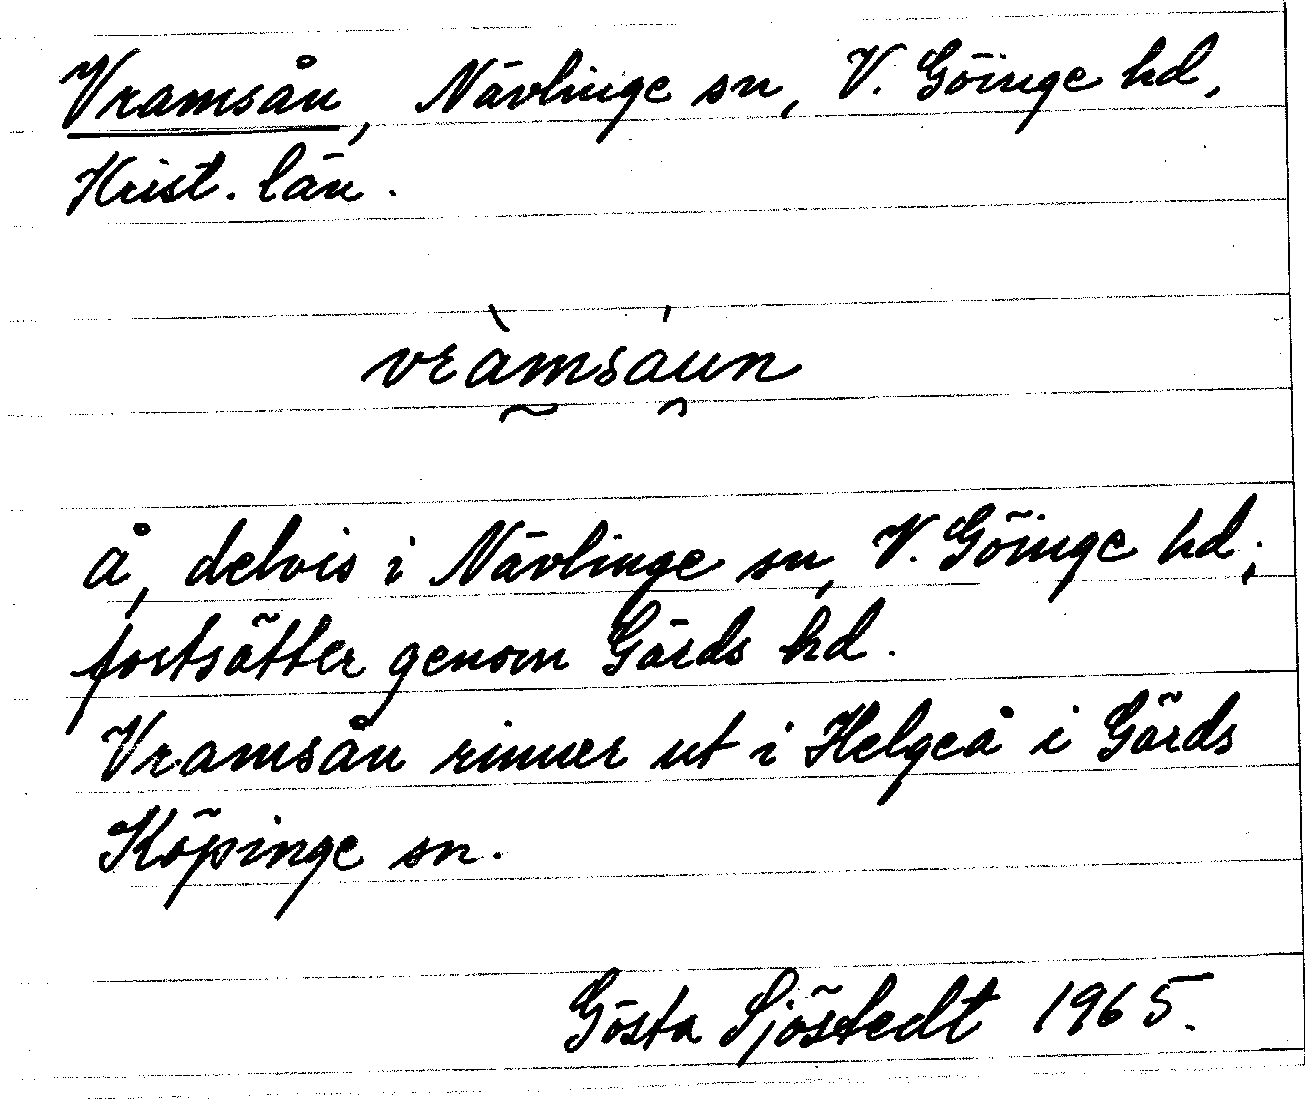 Vramsån, Nävlinge sn, V. Göinge hd,
Krist. län.
vràmsáun
å, delvis i Nävlinge sn, V. Göinge hd;
fortsätter genom Gärds hd.
Vramsån rinner ut i Helgeå i Gärds
Köpinge sn.
Gösta Sjöstedt 1965.